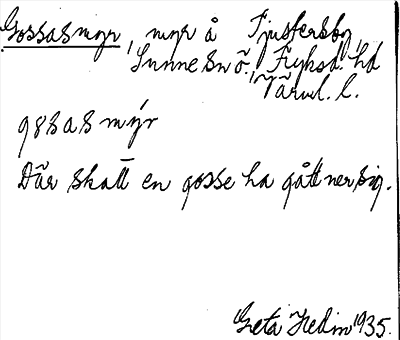 Gossasmyr, myr å Tjustersby,
Sunne sn ö., Fryksd. hd
Värml. l.
gɔsasmýr
Där skall en gosse ha gått ner sig.
Greta Hedin 1935.